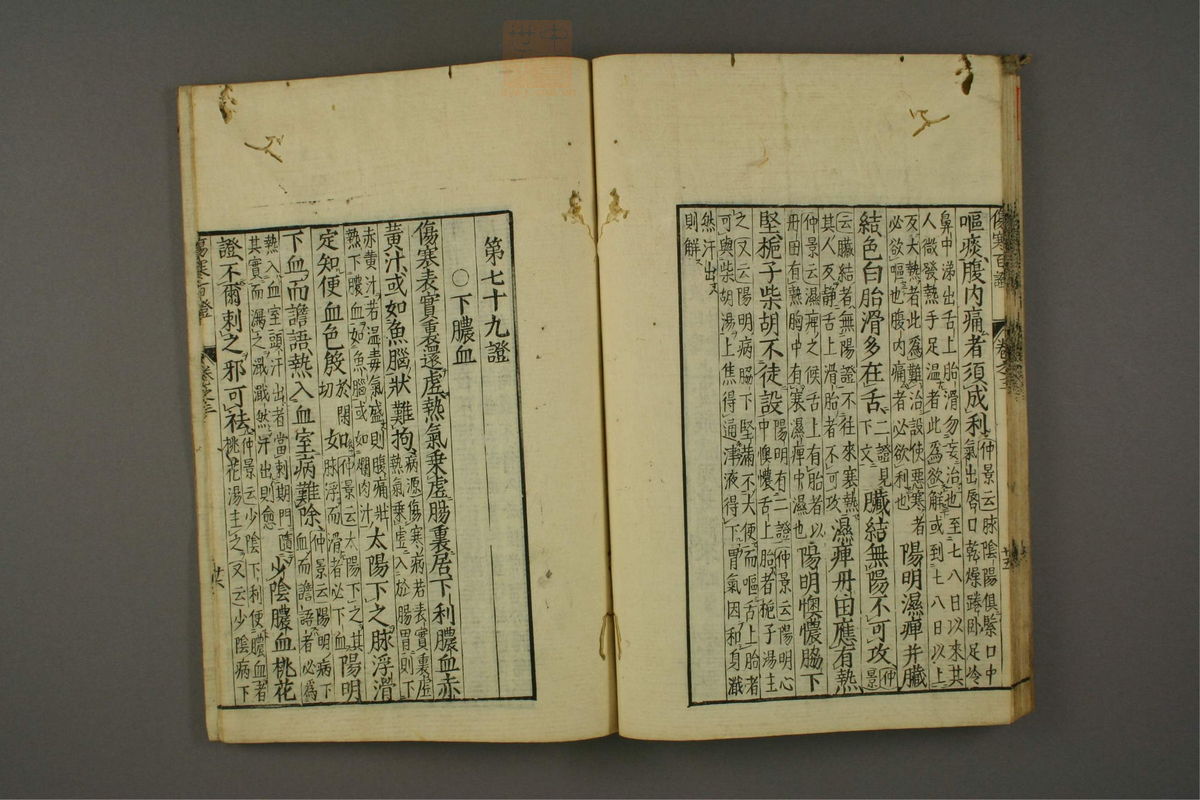 傷寒百證
卷之三
嘔痰腹内痛者須成利
仲景云脉陰陽俱緊口中
氣出唇口乾燥踡卧足冷
鼻中涕出舌上胎滑勿妄治也至七八日以来其
人微發熱手足温者此為欲解或到七八日以上
反大熱者此為難治設使惡寒者
必欲嘔也腹内痛者必欲利也
陽明濕痺并臓
結色白胎滑多在舌
二證見
下文
臓結無陽不可攻
仲景
云臓結者無陽證不往来寒熱
其人反静舌上滑胎者不可攻
濕痺丹田應有熱
仲景云濕痺之候舌上有胎者以
丹田有熱胸中有寒濕痺中濕也
陽明懊憹脇下
堅梔子柴胡不徒設
陽明有二證仲景云陽明心
中懊憹舌上胎者梔子湯主
之又云陽明病脇下堅滿不大便而嘔舌上胎者
可與柴胡湯上焦得通津液得下胃氣因和身濈
然汗出
則解
第七十九證
○下膿血
傷寒表實裏還虚熱氣乗虚腸裏居下利膿血赤
黄汁或如魚腦狀難拘
病源傷寒病若表實裏虚
熱氣乗虚入於腸胃則下
赤黄汁若温毒氣盛則腹痛壯
熱下膿血如魚腦或如爛肉汁
太陽下之脉浮滑
定知便血色殷
於閑
切
如
仲景云太陽下之其
脉浮而滑者必下血
陽明
下血而譫語熱入血室病難除
仲景云陽明病下
血而譫語者必為
熱入血室頭汗出者當刺期門隨
其實而瀉之濈濈然汗出則愈
少陰膿血桃花
證不爾刺之邪可祛
仲景云少陰下利便膿血者
桃花湯主之又云少陰病下
傷寒百證
卷之三